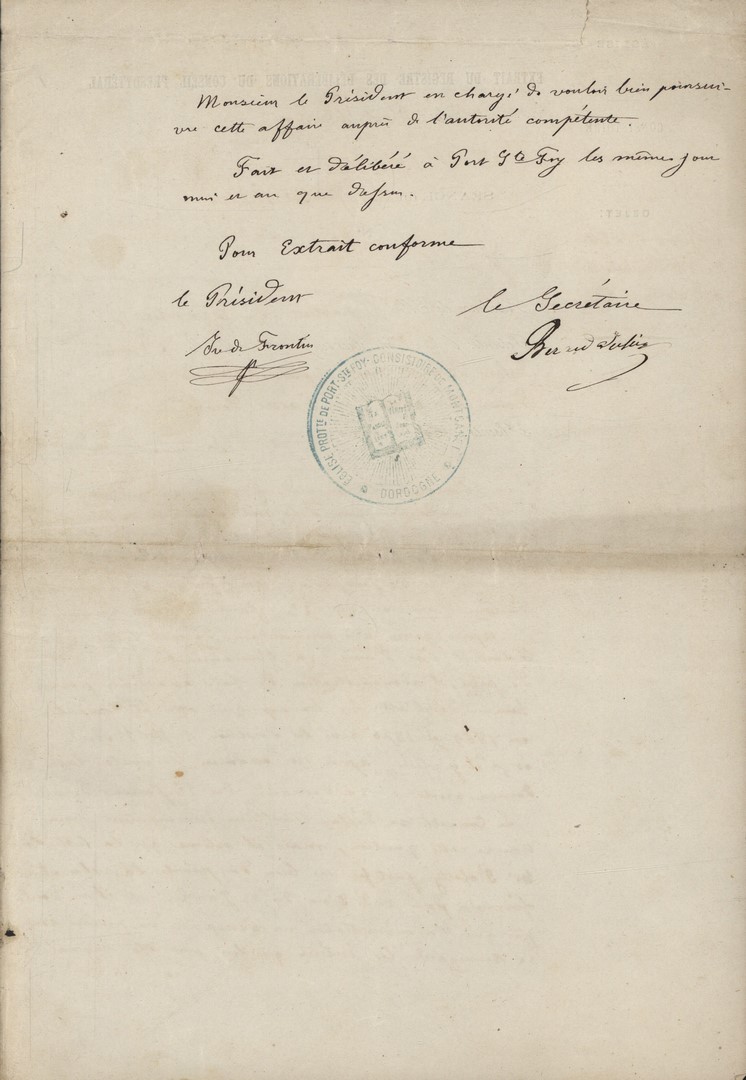 Monsieur le Président en chargé de vouloir bien poursui-
vre cette affaire auprès de l'autorité compétente.
Fait et délibéré à Port Ste Foy les mêmes jour
mois et an que dessus.
Pour Extrait conforme
le Président
le Secrétaire
ÉGLISE PROTte DE PORT-Ste FOY · CONSISTOIRE DE MONTCARET
DORDOGNE